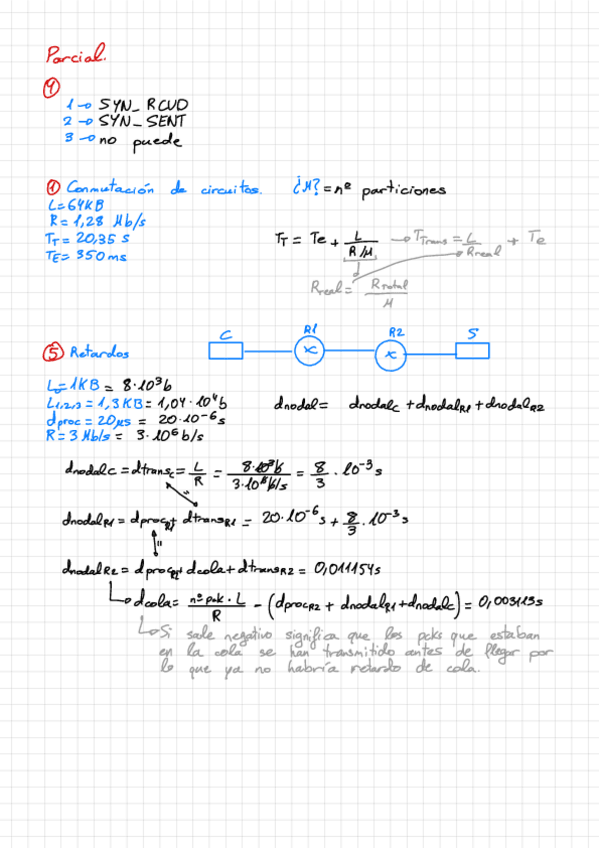 Parcial.
4
1 → SYN_RCVD
2 → SYN_SENT
3 → no puede
1 Conmutación de circuitos. ¿M? = nº particiones
L = 64KB
R = 1,28 Mb/s
T_T = 20,35 s
T_E = 350 ms
T_T = Te + L / R/M → T_Trans = L / Rreal + Te
Rreal = Rtotal / M
C R1 R2 S
5 Retardos
L_0 = 1KB = 8·10³b
L_1,2,3 = 1,3KB = 1,04·10⁴b
dproc = 20μs = 20·10⁻⁶s
R = 3 Mb/s = 3·10⁶b/s
dnodal = dnodal_C + dnodal_R1 + dnodal_R2
dnodal_C = dtrans_C = L/R = 8·10³b / 3·10⁶b/s = 8/3 · 10⁻³s
dnodal_R1 = dproc_R1 + dtrans_R1 = 20·10⁻⁶s + 8/3 · 10⁻³s
dnodal_R2 = dproc_R2 + dcola + dtrans_R2 = 0,011154s
dcola = nº pck · L / R − (dproc_R2 + dnodal_R1 + dnodal_C) = 0,003113s
Si sale negativo significa que los pcks que estaban
en la cola se han transmitido antes de llegar por
lo que ya no habría retardo de cola.